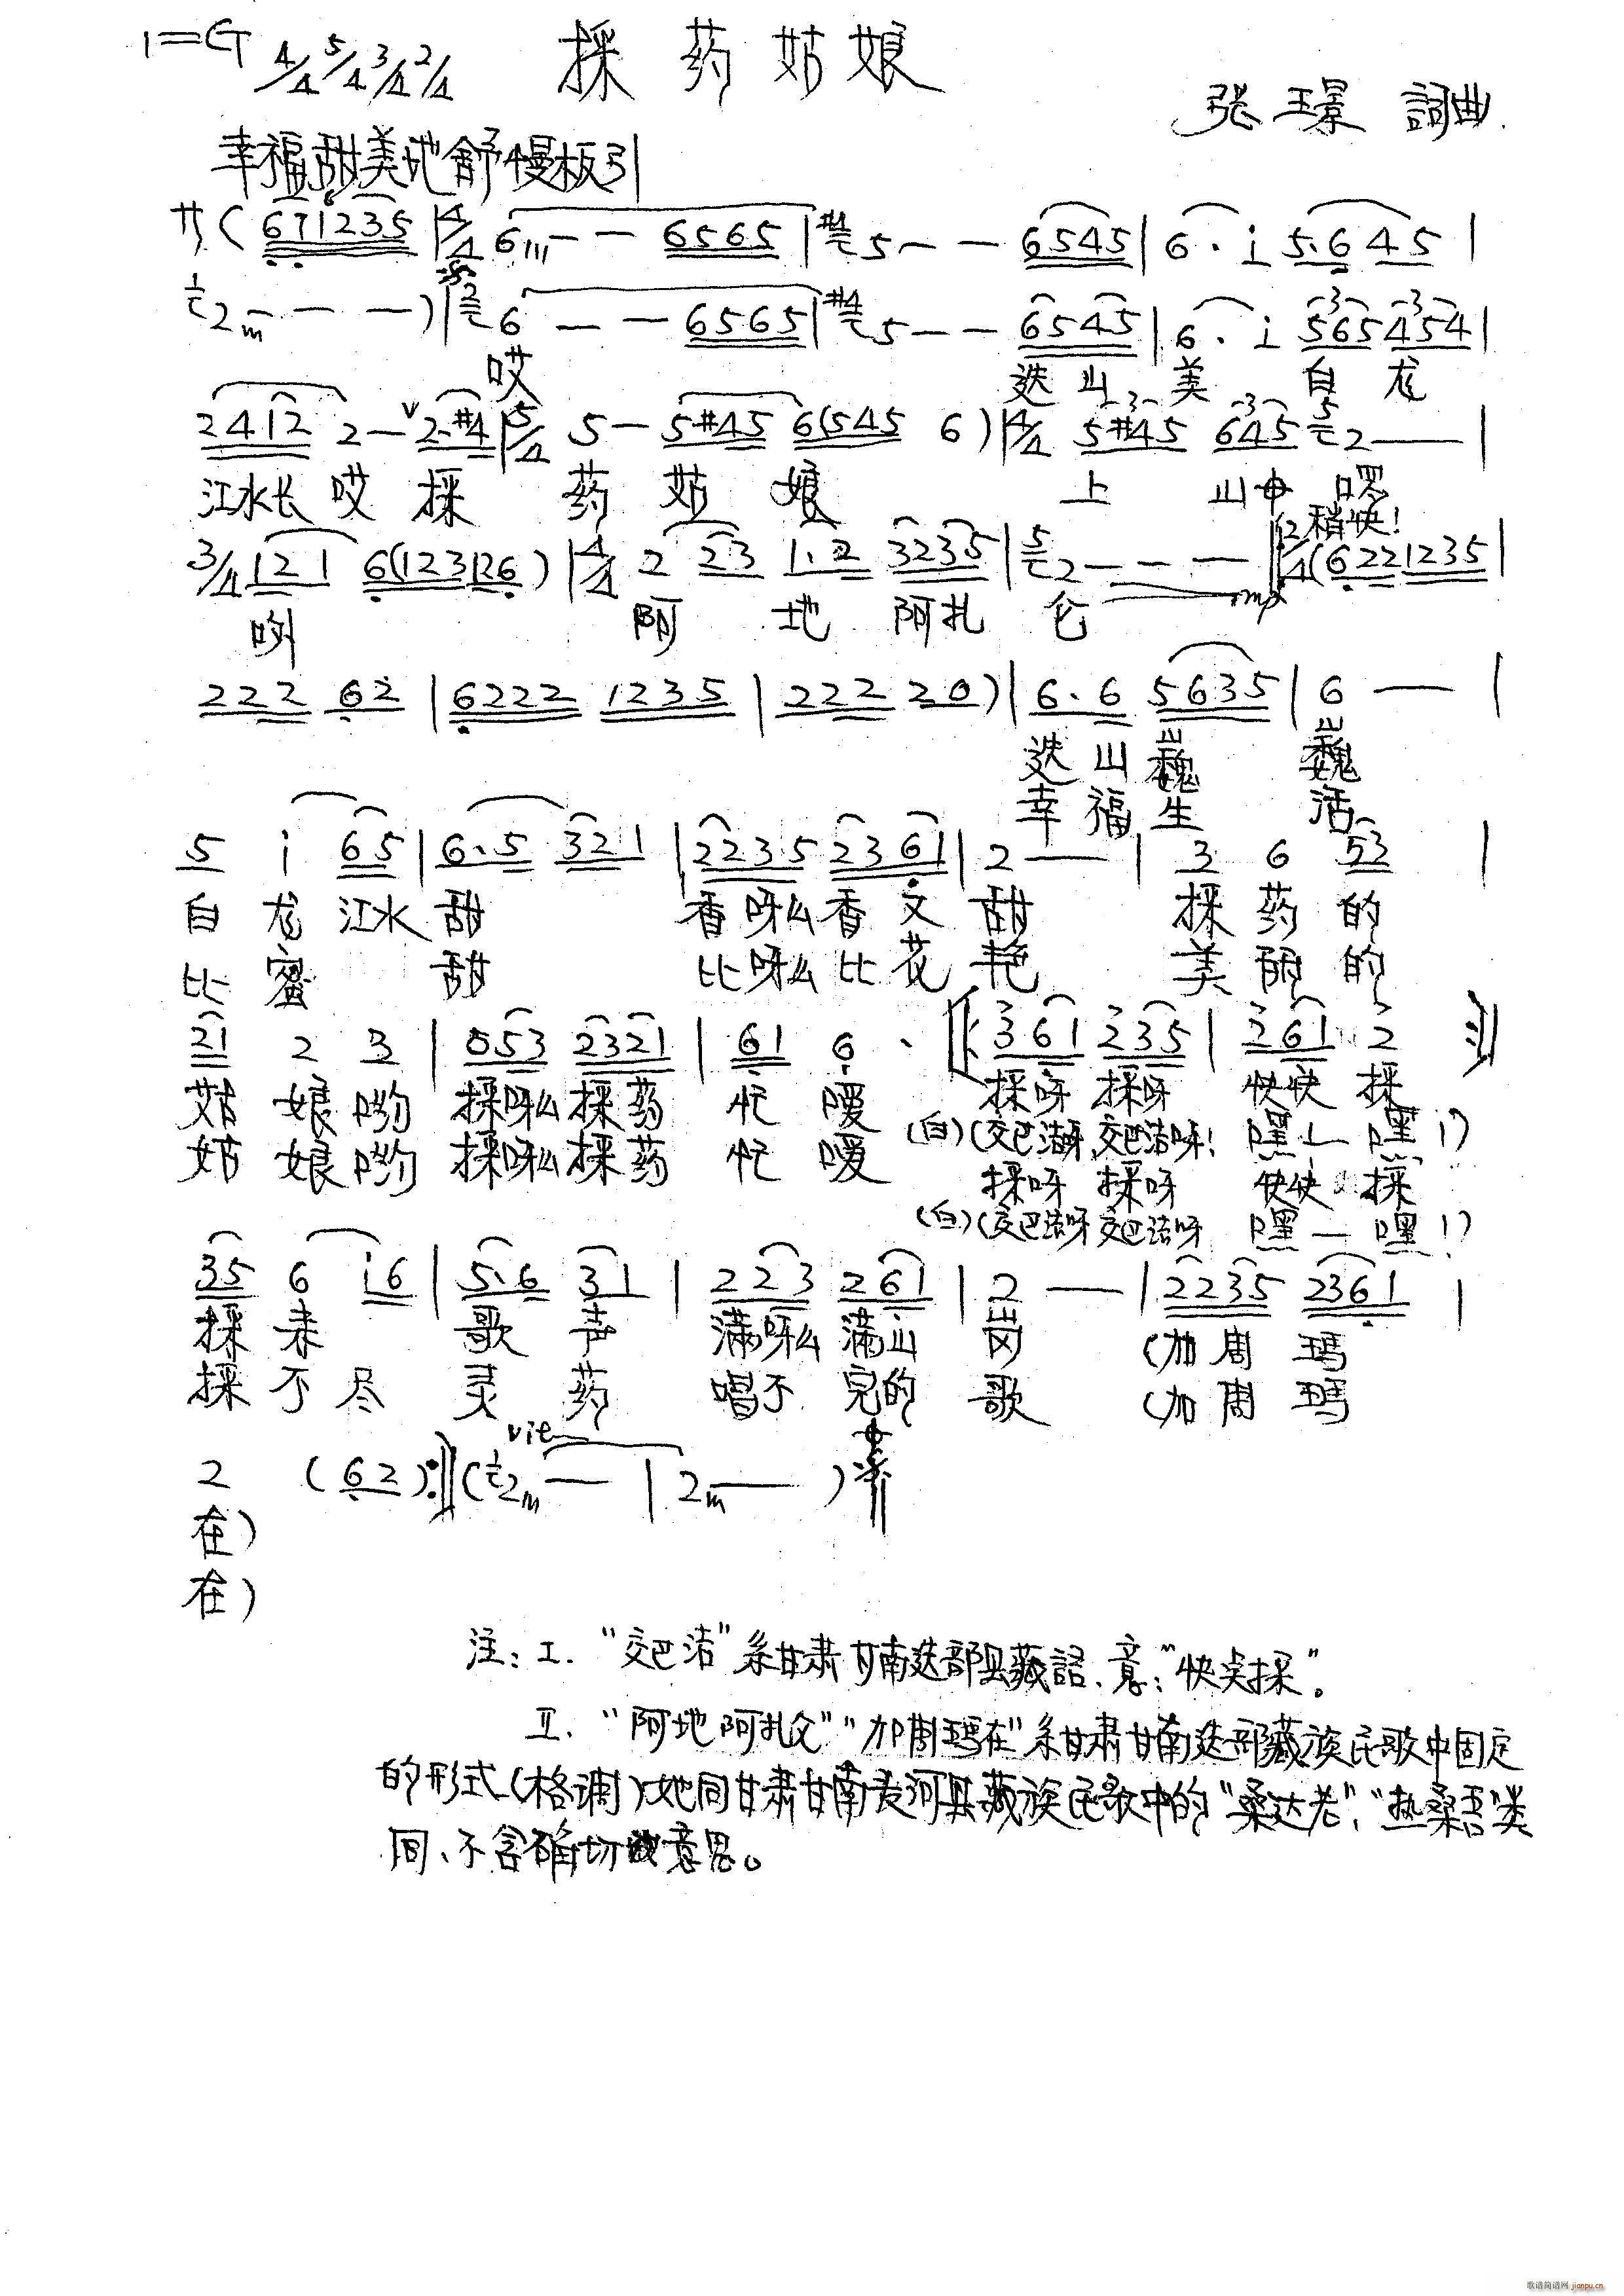 1=G 4/4 5/4 3/4 2/4 採药姑娘
张玉景 詞曲
幸福甜美地 舒慢板引
サ( 671235 | 4/4 6 — — 6565 | #4 5 — — 6545 | 6 · i 5·6 45 |
1 2 — — —) | 2 6 — — 6565 | #4 5 — — 6545 | 6 · i 565 454 |
哎 迭山 美 白 龙
2412 2 — 2·#4 | 5/4 5 — 5#45 6(545 6) | 4/4 5#45 645 5 2 — |
江水长 哎 採 药 姑 娘 上 山中 啰
稍快!
3/4 12 1 6(123126) | 4/4 2 23 1·2 3235 | 5 2 — — — mp ‖ 2/4 (622 1235 |
阿 地 阿扎 仑
222 62 | 6222 1235 | 222 20) | 6·6 5635 | 6 — |
迭 山 巍 巍
幸 福 生 活
5 i 65 | 6·5 321 | 2235 2361 | 2 — | 3 6 53 |
白 龙 江水 甜 香呀么香又甜 採 药 的
比 蜜 甜 比呀么比花艳 美 丽 的
21 2 3 | 053 2321 | 61 6 · ‖: 361 235 | 261 2 :‖
姑 娘 哟 採呀么採药 忙 嗳 採呀 採呀 快快 採
(白)(交巴洁呀,交巴洁呀! 嘿 — 嘿!)
姑 娘 哟 採呀么採药 忙 嗳 採呀 採呀 快快 採
(白)(交巴洁呀 交巴洁呀 嘿 — 嘿!)
35 6 i6 | 5·6 31 | 223 261 | 2 — | 2235 2361 |
採 来 歌 声 满呀么满山 岗 (加周 玛
採 不 尽 灵 药 唱不 完的 歌 (加周 玛
vit
2 (62) :‖ (1 2 — | 2 — )
在)
在)
注: I. “交巴洁”系甘肃甘南迭部县藏語、意:“快点採”。
II. “阿地阿扎仑”“加周玛在”系甘肃甘南迭部藏族民歌中固定
的形式(格调)她同甘肃甘南夏河县藏族民歌中的“桑达老”、“热桑吾”类
同、不含确切的意思。
歌谱简谱网 jianpu.cn